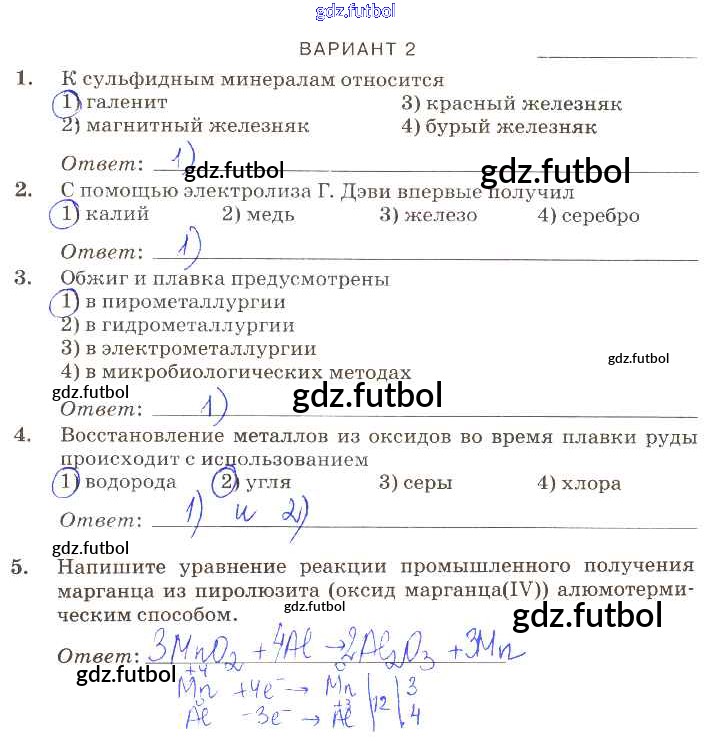 gdz.futbol
ВАРИАНТ 2
1. К сульфидным минералам относится
1) галенит 3) красный железняк
2) магнитный железняк 4) бурый железняк
Ответ: 1)
gdz.futbol
gdz.futbol
2. С помощью электролиза Г. Дэви впервые получил
1) калий 2) медь 3) железо 4) серебро
Ответ: 1)
3. Обжиг и плавка предусмотрены
1) в пирометаллургии
2) в гидрометаллургии
3) в электрометаллургии
gdz.futbol
4) в микробиологических методах
gdz.futbol
gdz.futbol
Ответ: 1)
4. Восстановление металлов из оксидов во время плавки руды
происходит с использованием
1) водорода 2) угля 3) серы 4) хлора
Ответ: 1) и 2)
gdz.futbol
5. Напишите уравнение реакции промышленного получения
марганца из пиролюзита (оксид марганца(IV)) алюмотерми-
ческим способом.
gdz.futbol
gdz.futbol
Ответ: 3MnO2 + 4Al → 2Al2O3 + 3Mn
+4 0
Mn +4e- → Mn | 12 | 3
0 +3
Al -3e- → Al | 4